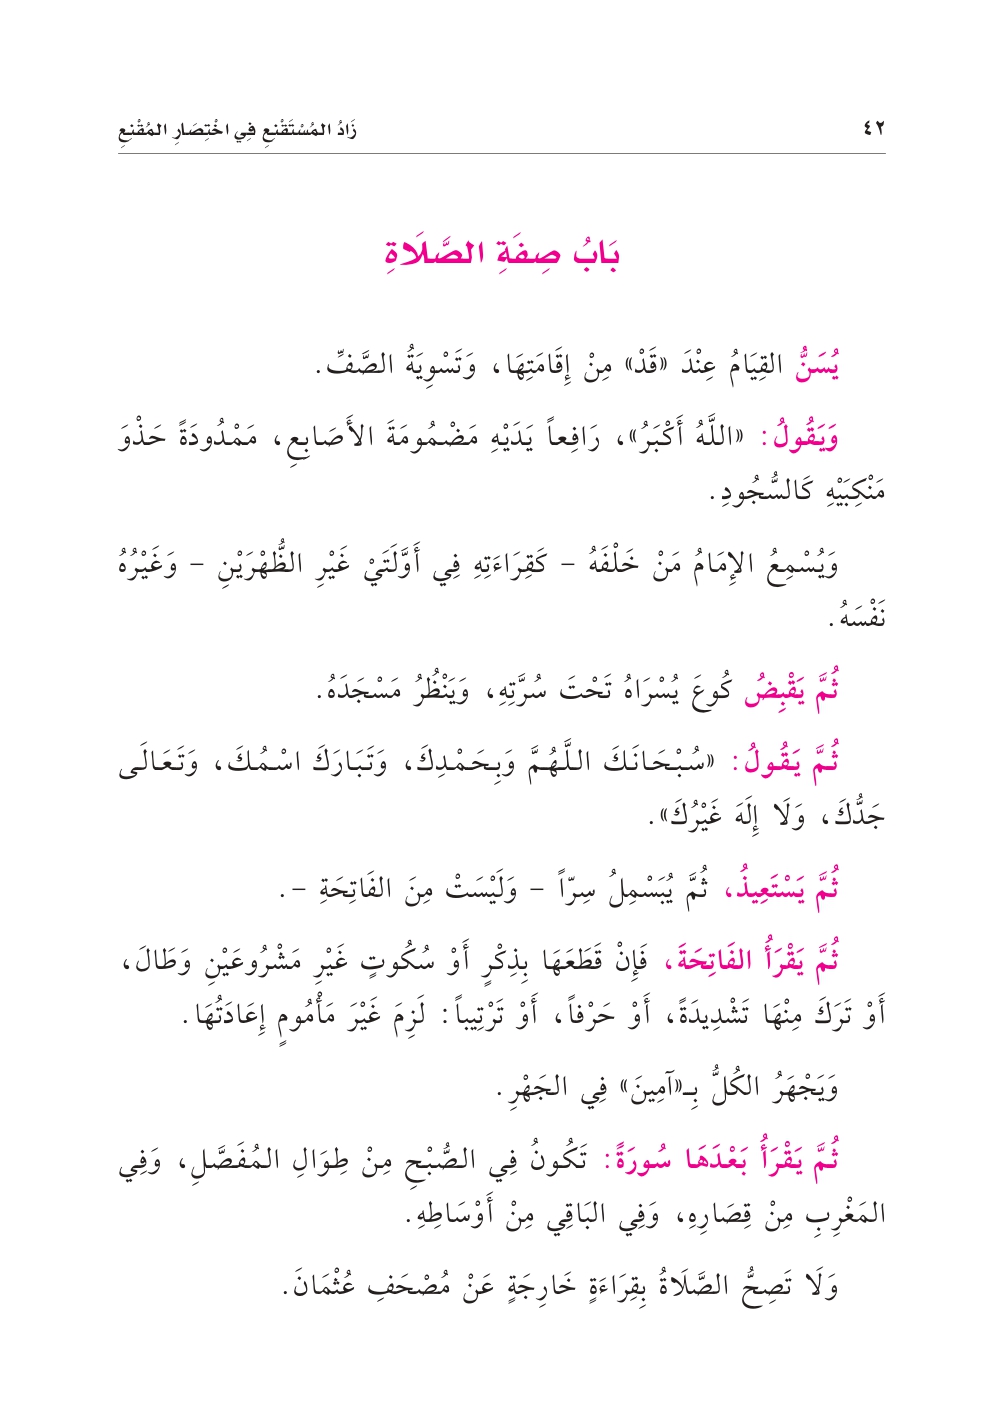 ٤٢
زَادُ المُسْتَقْنِعِ فِي اخْتِصَارِ المُقْنِعِ
بَابُ صِفَةِ الصَّلَاةِ
يُسَنُّ القِيَامُ عِنْدَ «قَدْ» مِنْ إِقَامَتِهَا، وَتَسْوِيَةُ الصَّفِّ.
وَيَقُولُ: «اللَّهُ أَكْبَرُ»، رَافِعاً يَدَيْهِ مَضْمُومَةَ الأَصَابِعِ، مَمْدُودَةً حَذْوَ
مَنْكِبَيْهِ كَالسُّجُودِ.
وَيُسْمِعُ الإِمَامُ مَنْ خَلْفَهُ – كَقِرَاءَتِهِ فِي أَوَّلَتَيْ غَيْرِ الظُّهْرَيْنِ – وَغَيْرُهُ
نَفْسَهُ.
ثُمَّ يَقْبِضُ كُوعَ يُسْرَاهُ تَحْتَ سُرَّتِهِ، وَيَنْظُرُ مَسْجَدَهُ.
ثُمَّ يَقُولُ: «سُبْحَانَكَ اللَّهُمَّ وَبِحَمْدِكَ، وَتَبَارَكَ اسْمُكَ، وَتَعَالَى
جَدُّكَ، وَلَا إِلَهَ غَيْرُكَ».
ثُمَّ يَسْتَعِيذُ، ثُمَّ يُبَسْمِلُ سِرّاً – وَلَيْسَتْ مِنَ الفَاتِحَةِ –.
ثُمَّ يَقْرَأُ الفَاتِحَةَ، فَإِنْ قَطَعَهَا بِذِكْرٍ أَوْ سُكُوتٍ غَيْرِ مَشْرُوعَيْنِ وَطَالَ،
أَوْ تَرَكَ مِنْهَا تَشْدِيدَةً، أَوْ حَرْفاً، أَوْ تَرْتِيباً: لَزِمَ غَيْرَ مَأْمُومٍ إِعَادَتُهَا.
وَيَجْهَرُ الكُلُّ بِـ«آمِينَ» فِي الجَهْرِ.
ثُمَّ يَقْرَأُ بَعْدَهَا سُورَةً: تَكُونُ فِي الصُّبْحِ مِنْ طِوَالِ المُفَصَّلِ، وَفِي
المَغْرِبِ مِنْ قِصَارِهِ، وَفِي البَاقِي مِنْ أَوْسَاطِهِ.
وَلَا تَصِحُّ الصَّلَاةُ بِقِرَاءَةٍ خَارِجَةٍ عَنْ مُصْحَفِ عُثْمَانَ.